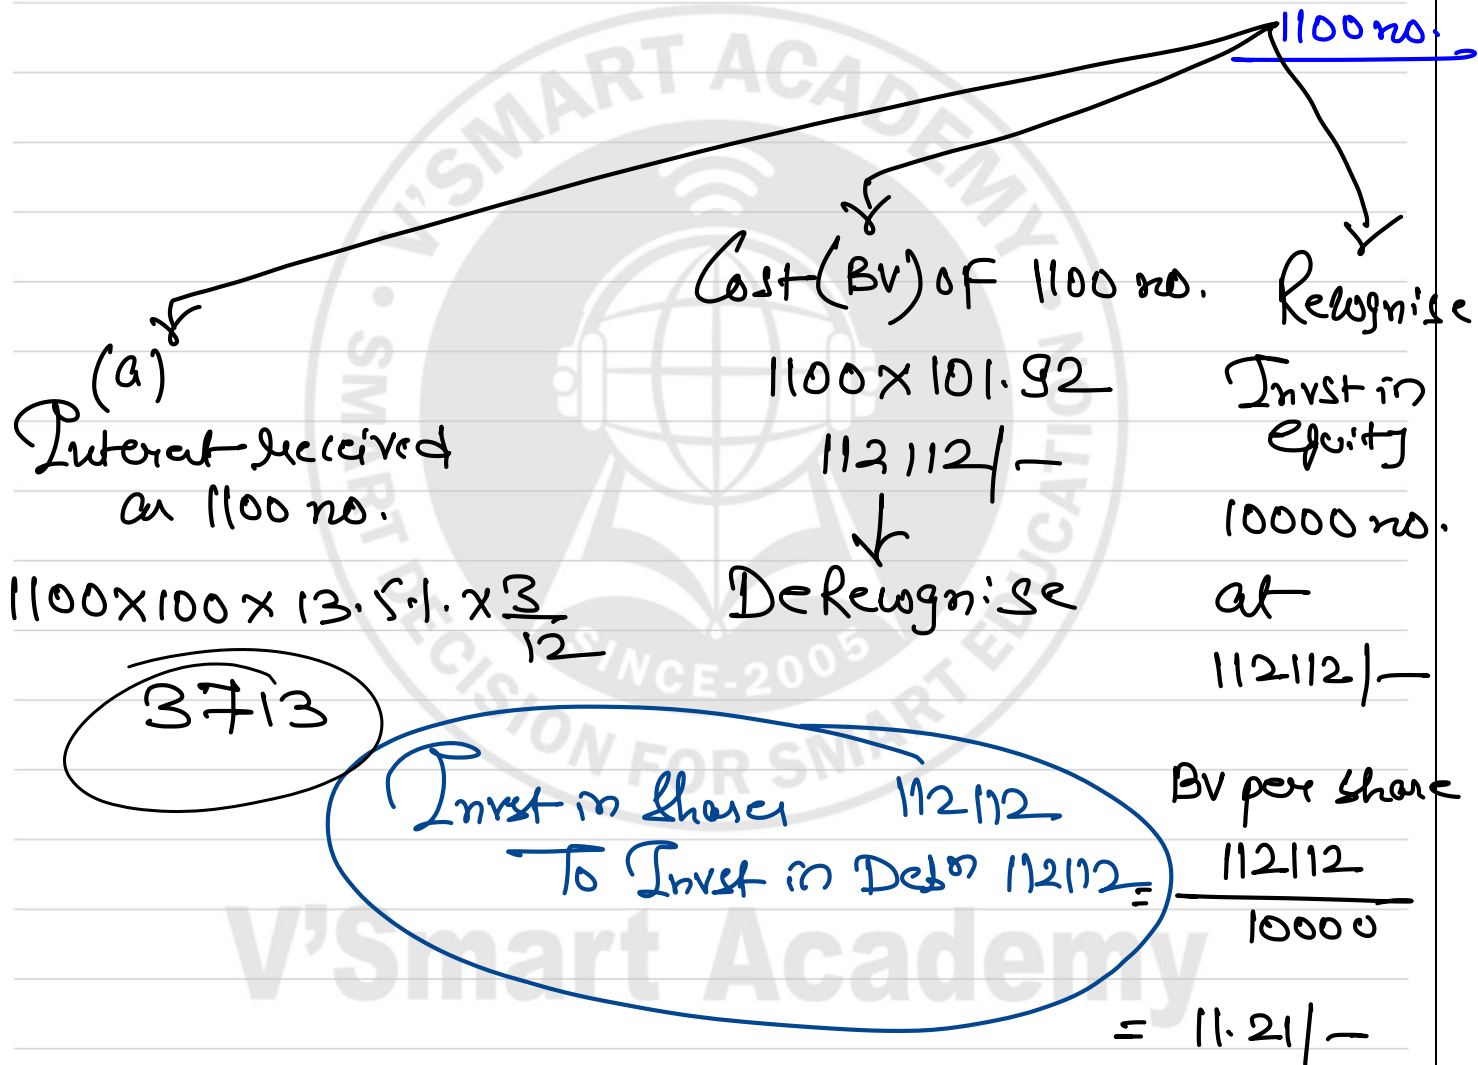 1100 no.
(a)
Interest received
on 1100 no.
1100 x 100 x 13.5% x 3/12
3713
Cost (BV) of 1100 no.
1100 x 101.92
112112/-
DeRecognise
Recognise
Invst in
equity
10000 no.
at
112112/-
BV per share
= 112112
10000
= 11.21/-
Invst in Shares 112112
To Invst in Debn 112112
V'SMART ACADEMY
SMART DECISION FOR SMART EDUCATION
SINCE-2005
V'Smart Academy